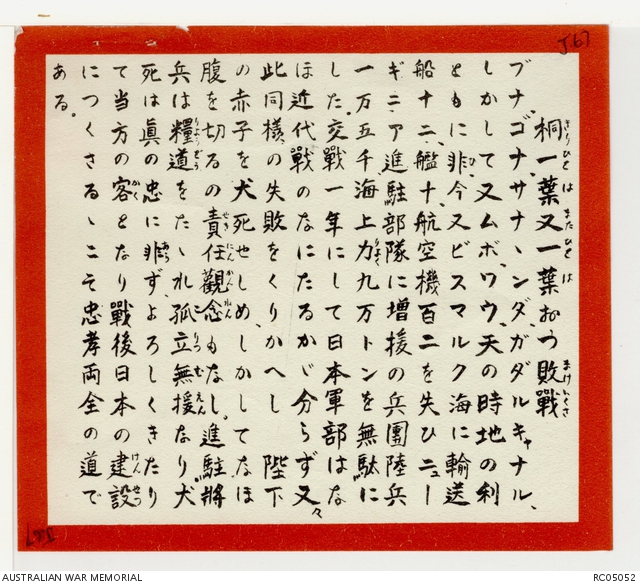 J.67
桐一葉又一葉おつ敗戰
ブナ、ゴナ、サナヽンダ、ガダルキャナル、
しかして又ムボ、ワウ、天の時地の利
ともに非、今又ビスマルク海に輸送
船十二、艦十、航空機百二を失ひニュー
ギニア進駐部隊に増援の兵團陸兵
一万五千海上力九万トンを無駄に
した。交戰一年にして日本軍部はな
ほ近代戰のなにたるかゞ分らず又々
此同様の失敗をくりかへし 陛下
の赤子を犬死せしめ、しかしてなほ
腹を切るの責任觀念もなし。進駐將
兵は糧道をたゝれ孤立無援なり犬
死は眞の忠に非ず、よろしくきたり
て当方の客となり戰後日本の建設
につくさるゝこそ忠孝両全の道で
ある。
AUSTRALIAN WAR MEMORIAL
RC05052